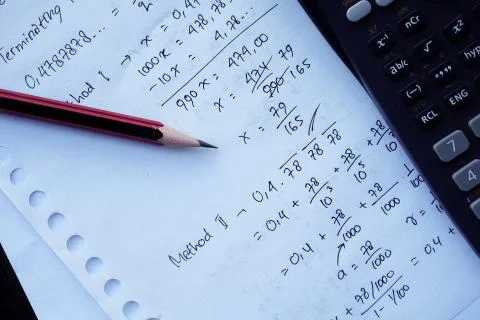 Terminating
0,4787878... =
Method I → x = 0,47
1000x = 478,78
-10x = 4,78...
990x = 474,00
x = 474 79
990 165
x = 79
165
Method II - 0,4 . 78 78 78
= 0,4 + 78/10³ + 78/10⁵ + 78/10
= 0,4 + 78/1000 + 78/1000 . 1/100
a = 78/1000 r =
+ 78/1000 = 0,4 +
1- 1/100
x⁻¹ nCr
ab/c √ x² hyp
(-) °'"
RCL ENG
7
4